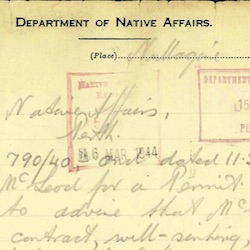 DEPARTMENT OF NATIVE AFFAIRS.
(Place) Nullagine
NATIVE
DEPARTMENT
15
16 MAR 1944
PE
Native Affairs,
Perth.
790/40 and dated 11.3
McLeod for a Permit
to advise that Mc
contract, well-sinking